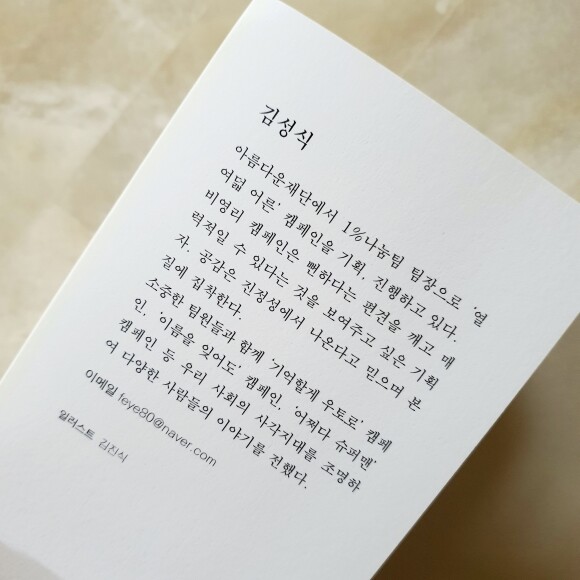 김성식
아름다운재단에서 1%나눔팀 팀장으로 '열
여덟 어른' 캠페인을 기획, 진행하고 있다.
비영리 캠페인은 뻔하다는 편견을 깨고 매
력적일 수 있다는 것을 보여주고 싶은 기획
자. 공감은 진정성에서 나온다고 믿으며 본
질에 집착한다.
소중한 팀원들과 함께 '기억할게 우토로' 캠페
인, '이름을 잊어도' 캠페인, '어쩌다 슈퍼맨'
캠페인 등 우리 사회의 사각지대를 조명하
여 다양한 사람들의 이야기를 전했다.
이메일 feye80@naver.com
일러스트 김진식